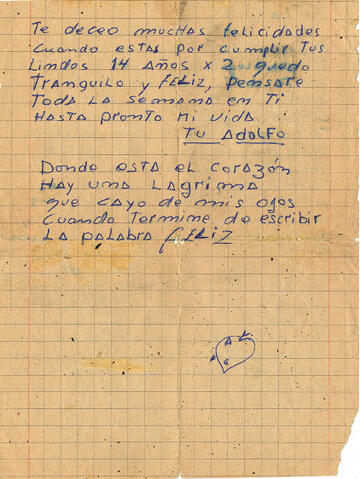 Te deceo muchas felicidades
Cuando estas por cumplir Tus
Lindos 14 Años x 2 quedo
Tranquilo y FELIZ, pensare
Toda La semana en Ti
Hasta pronto mi vida
Tu Adolfo
Donde esta el corazón
Hay una Lagrima
que cayo de mis ojos
Cuando Termine de escribir
La palabra FELIZ